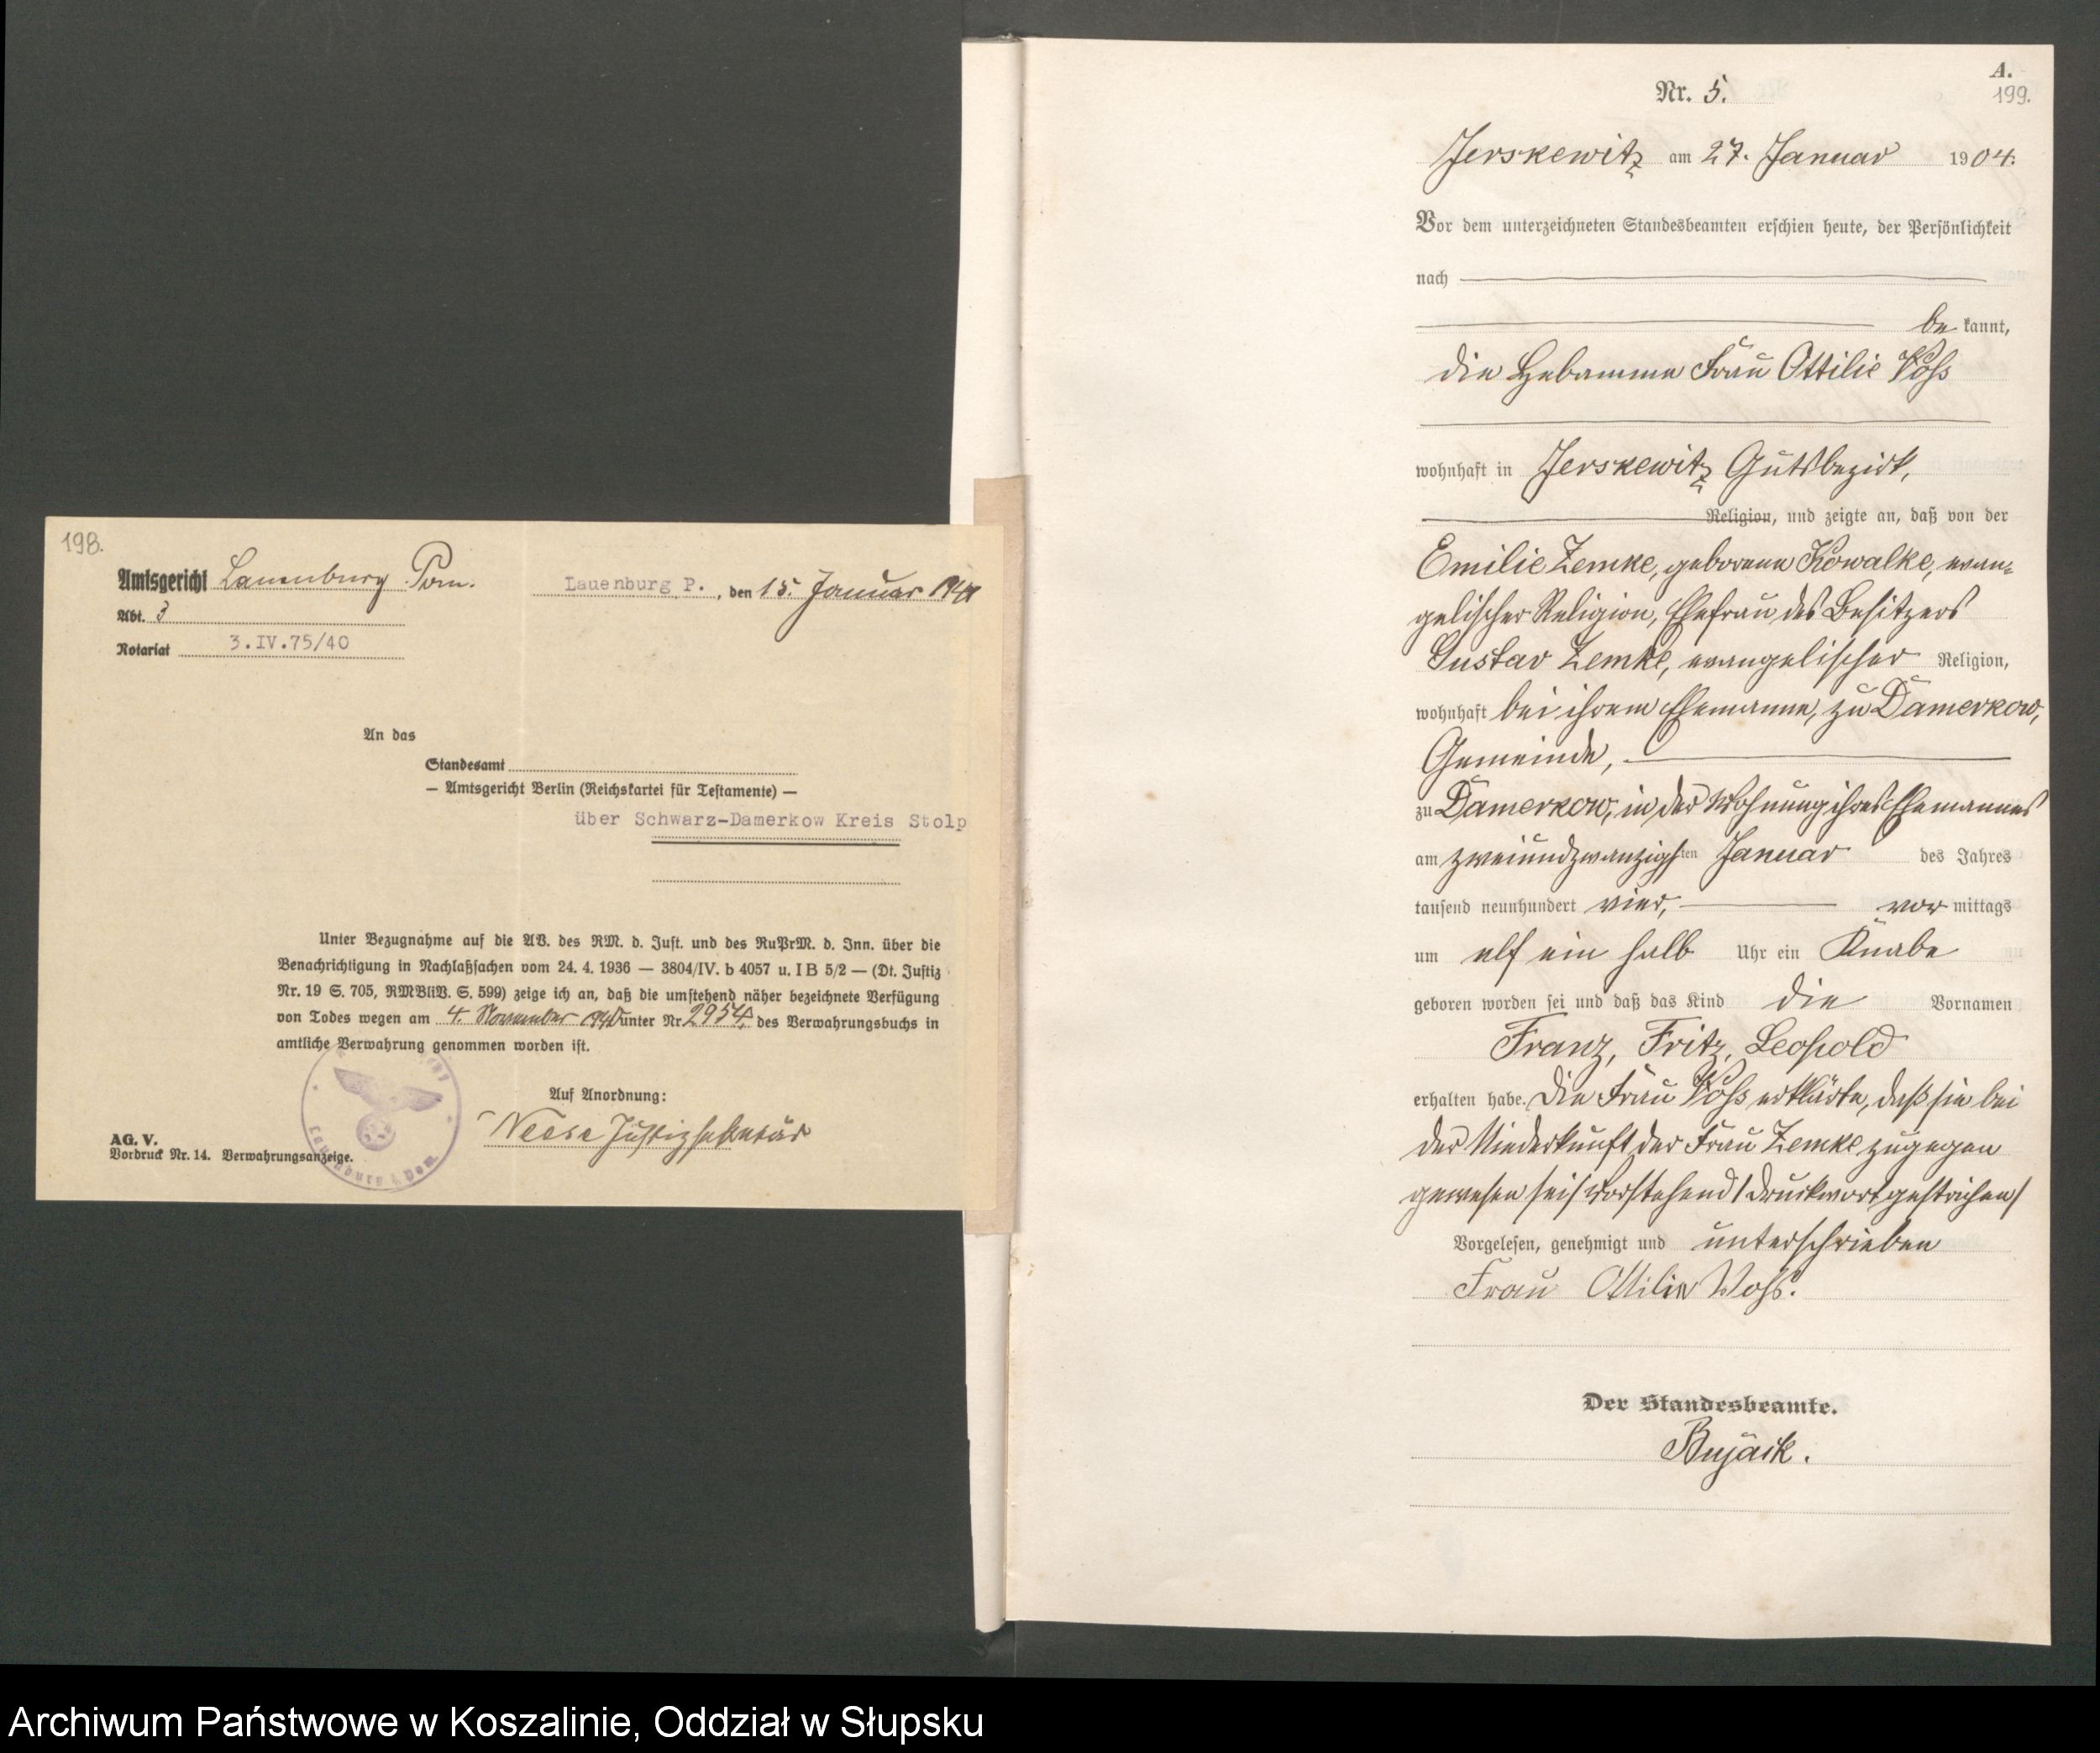 198.
Amtsgericht Lauenburg Pom.
Lauenburg P., den 15. Januar 1941
Abt. 3
Notariat 3.IV.75/40
An das
Standesamt
— Amtsgericht Berlin (Reichskartei für Testamente) —
über Schwarz-Damerkow Kreis Stolp
Unter Bezugnahme auf die AV. des RM. d. Just. und des RuPrM. d. Inn. über die
Benachrichtigung in Nachlaßsachen vom 24. 4. 1936 — 3804/IV. b 4057 u. I B 5/2 — (Dt. Justiz
Nr. 19 S. 705, RMBliV. S. 599) zeige ich an, daß die umstehend näher bezeichnete Verfügung
von Todes wegen am 4. November 1940 unter Nr. 2954. des Verwahrungsbuchs in
amtliche Verwahrung genommen worden ist.
Auf Anordnung:
Neese Justizsekretär
AG. V.
Vordruck Nr. 14. Verwahrungsanzeige.
A.
Nr. 5.
199.
Jerskewitz am 27. Januar 1904.
Vor dem unterzeichneten Standesbeamten erschien heute, der Persönlichkeit
nach
be kannt,
die Hebamme Frau Ottilie Voß
wohnhaft in Jerskewitz Gutsbezirk,
Religion, und zeigte an, daß von der
Emilie Zemke, geborene Kowalke, evan-
gelischer Religion, Ehefrau des Besitzers
Gustav Zemke, evangelischer Religion,
wohnhaft bei ihrem Ehemanne, zu Damerkow,
Gemeinde,
zu Damerkow, in der Wohnung ihres Ehemannes
am zweiundzwanzigsten Januar des Jahres
tausend neunhundert vier, vor mittags
um elf ein halb Uhr ein Knabe
geboren worden sei und daß das Kind die Vornamen
Franz, Fritz, Leopold
erhalten habe. Die Frau Voß erklärte, daß sie bei
der Niederkunft der Frau Zemke zugegen
gewesen sei / Vorstehend 1 Druckwort gestrichen /
Vorgelesen, genehmigt und unterschrieben
Frau Ottilie Voß.
Der Standesbeamte.
Bujack.
Archiwum Państwowe w Koszalinie, Oddział w Słupsku